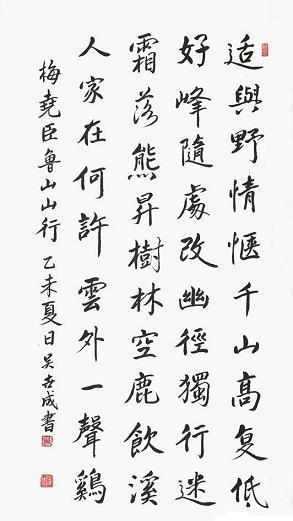 适與野情惬千山高复低
好峰隨處改幽徑獨行迷
霜落熊昇樹林空鹿飲溪
人家在何許雲外一聲鷄
梅堯臣魯山山行乙未夏日吴成書